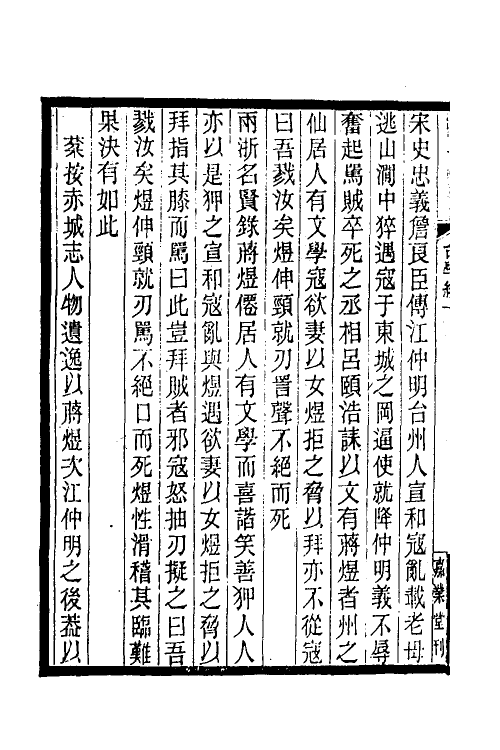 宋史忠義詹良臣傳江仲明台州人宣和寇亂載老母
逃山澗中猝遇寇于東城之岡逼使就降仲明義不辱
奮起罵賊卒死之丞相呂頤浩誄以文有蔣煜者州之
仙居人有文學寇欲妻以女煜拒之脅以拜亦不從寇
曰吾戮汝矣煜伸頸就刃詈聲不絕而死
兩浙名賢錄蔣煜僊居人有文學而喜諧笑善狎人人
亦以是狎之宣和寇亂與煜遇欲妻以女煜拒之脅以
拜指其膝而罵曰此豈拜賊者邪寇怒抽刃擬之曰吾
戮汝矣煜伸頸就刃罵不絕口而死煜性滑稽其臨難
果決有如此
棻按赤城志人物遺逸以蔣煜次江仲明之後葢以
嘉業堂刊